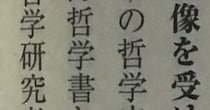 像を受け
の哲学
哲学書
哲学研究者